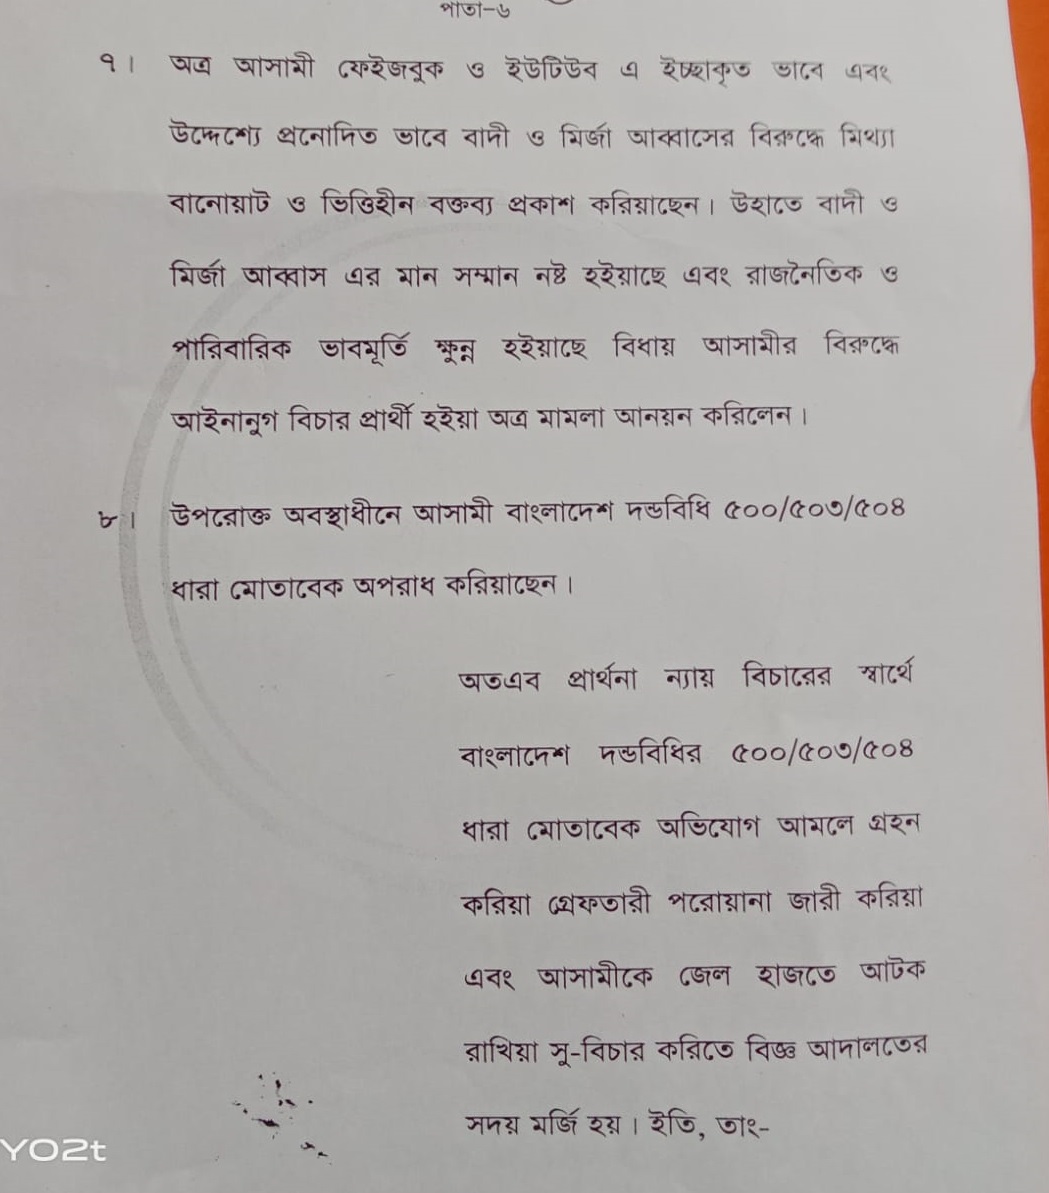 পাতা-৬
৭। অত্র আসামী ফেইজবুক ও ইউটিউব এ ইচ্ছাকৃত ভাবে এবং
উদ্দেশ্যে প্রনোদিত ভাবে বাদী ও মির্জা আব্বাসের বিরুদ্ধে মিথ্যা
বানোয়াট ও ভিত্তিহীন বক্তব্য প্রকাশ করিয়াছেন। উহাতে বাদী ও
মির্জা আব্বাস এর মান সম্মান নষ্ট হইয়াছে এবং রাজনৈতিক ও
পারিবারিক ভাবমূর্তি ক্ষুন্ন হইয়াছে বিধায় আসামীর বিরুদ্ধে
আইনানুগ বিচার প্রার্থী হইয়া অত্র মামলা আনয়ন করিলেন।
৮। উপরোক্ত অবস্থাধীনে আসামী বাংলাদেশ দন্ডবিধি ৫০০/৫০৩/৫০৪
ধারা মোতাবেক অপরাধ করিয়াছেন।
অতএব প্রার্থনা ন্যায় বিচারের স্বার্থে
বাংলাদেশ দন্ডবিধির ৫০০/৫০৩/৫০৪
ধারা মোতাবেক অভিযোগ আমলে গ্রহন
করিয়া গ্রেফতারী পরোয়ানা জারী করিয়া
এবং আসামীকে জেল হাজতে আটক
রাখিয়া সু-বিচার করিতে বিজ্ঞ আদালতের
সদয় মর্জি হয়। ইতি, তাং-
Y02t